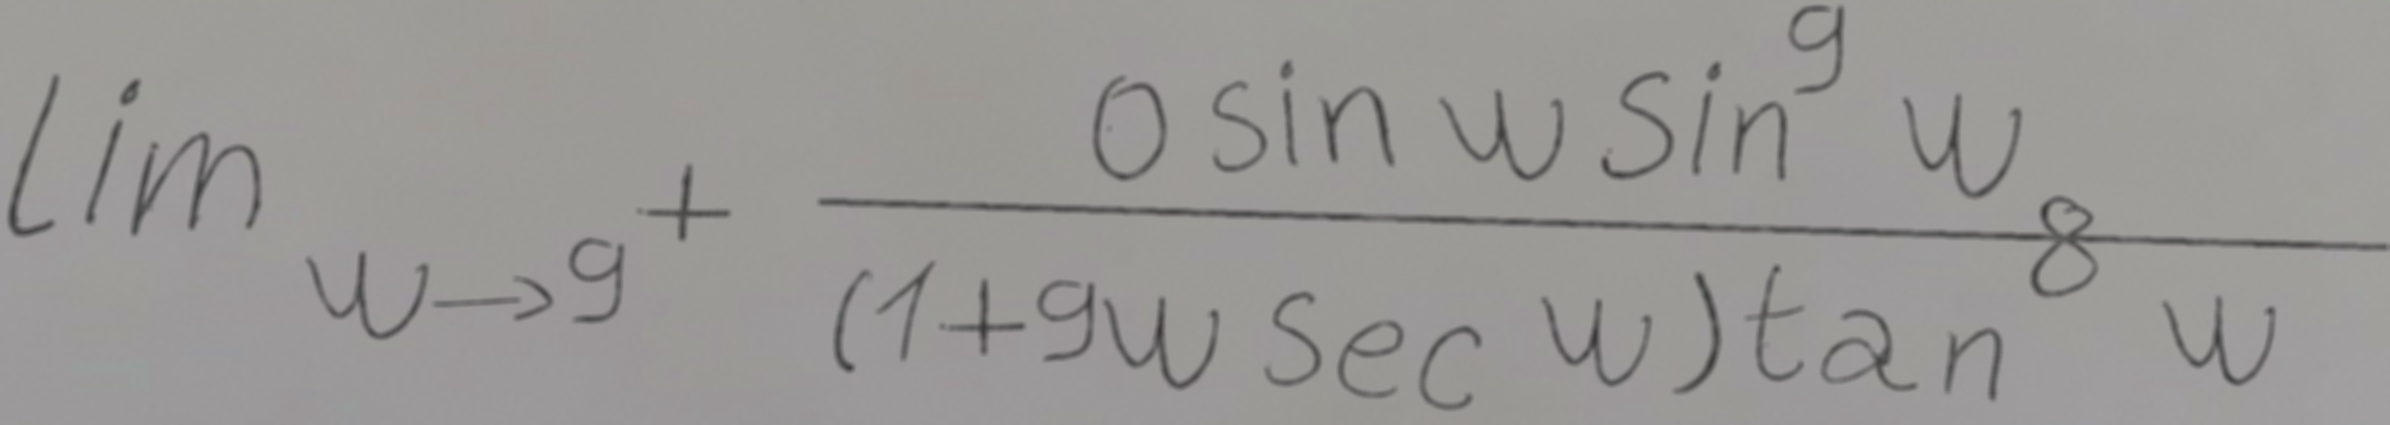 \lim_{w \to 9^+} \frac{0 \sin w \sin^9 w}{(1+9w \sec w) \tan^8 w}